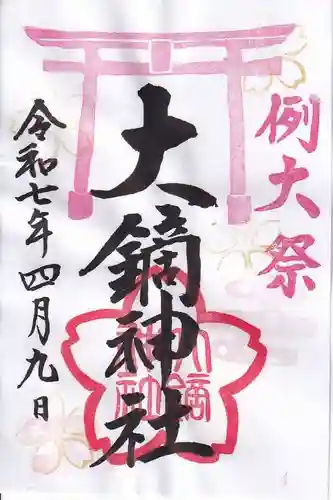 例大祭
大鏑神社
令和七年四月九日
大鏑
神社